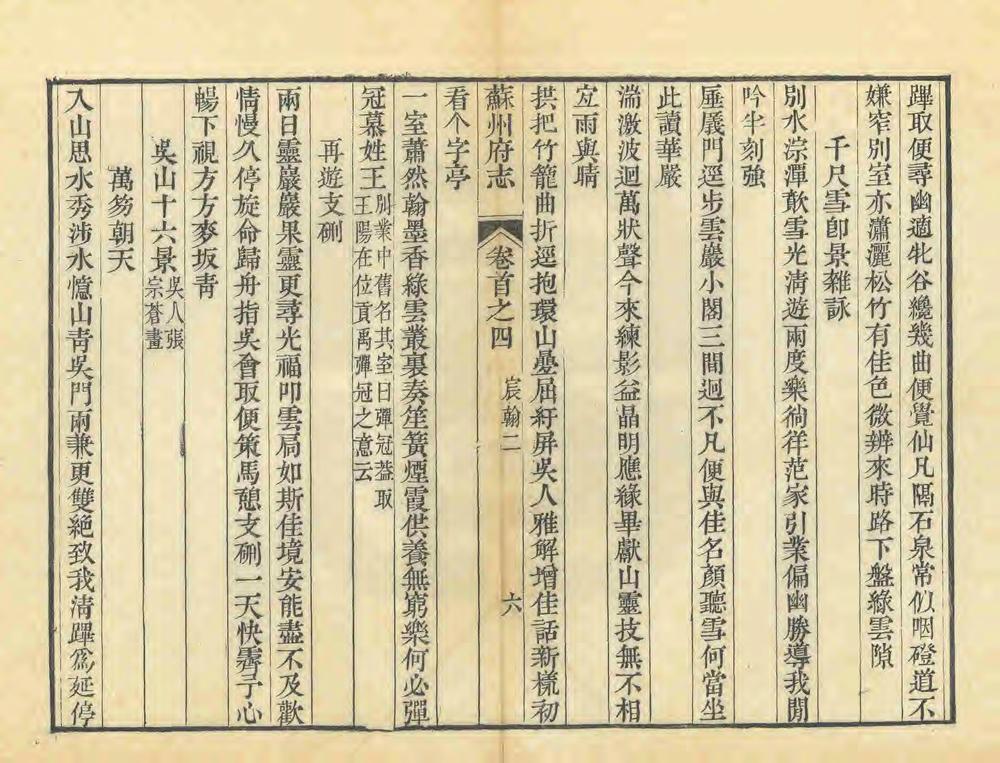 蹕取便尋幽適牝谷纔幾曲便覺仙凡隔石泉常似咽磴道不
嫌窄別室亦瀟灑松竹有佳色微辨來時路下盤綠雲隙
千尺雪卽景雜詠
別水淙潭歕雪光淸遊兩度樂徜徉范家引業偏幽勝導我閒
吟半刻強
厜㕒門逕步雲巖小閣三間迥不凡便與佳名顏聽雪何當坐
此讀華嚴
湍激波迴萬狀聲今來練影益晶明應緣畢獻山靈技無不相
宜雨與晴
拱把竹籠曲折逕抱環山疊屈紆屏吳人雅解增佳話新樣初
看个字亭
蘇州府志
卷首之四
宸翰二
六
一室蕭然翰墨香綠雲叢裏奏笙簧煙霞供養無窮樂何必彈
冠慕姓王
別業中舊名其室曰彈冠葢取
王陽在位貢禹彈冠之意云
再遊支硎
兩日靈巖巖果靈更尋光福叩雲扃如斯佳境安能盡不及歡
情慢久停旋命歸舟指吳會取便策馬憩支硎一天快霽予心
暢下視方方麥坂靑
吳山十六景
吳人張
宗蒼畫
萬笏朝天
入山思水秀涉水憶山靑吳門兩兼更雙絶致我淸蹕爲延停